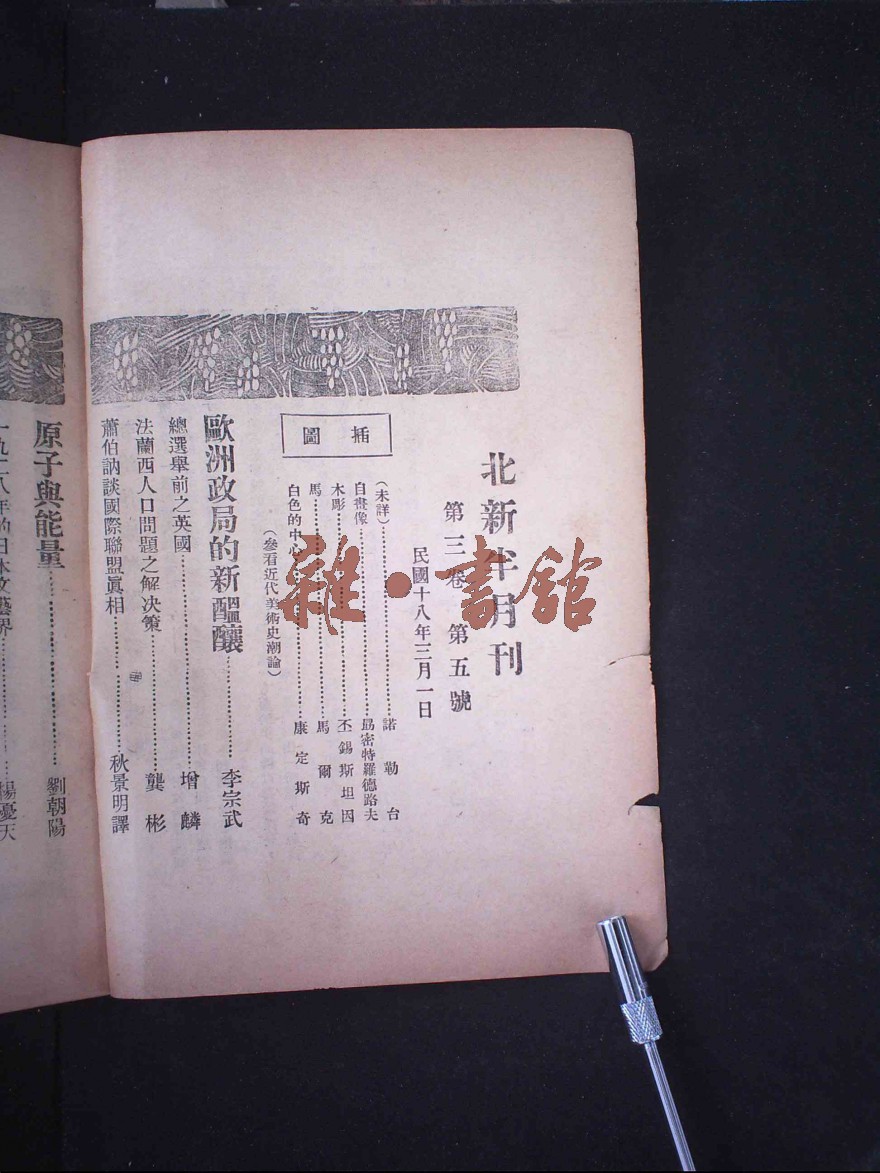 北新半月刊
第三卷 第五號
民國十八年三月一日
插圖
(未詳)……諾勒台
自畫像……勗密特羅德路夫
木彫……丕錫斯坦因
馬……馬爾克
白色的中心……康定斯奇
(參看近代美術史潮論)
歐洲政局的新醞釀……李宗武
總選舉前之英國……增麟
法蘭西人口問題之解決策……龔彬
蕭伯訥談國際聯盟眞相……秋景明譯
原子與能量……劉朝陽
一九二八年的日本文藝界……楊憂天
雜·書館